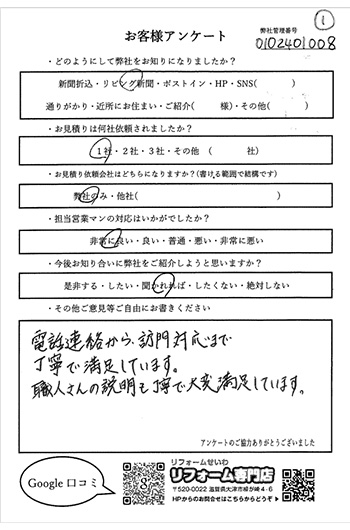 ①
お客様アンケート
弊社管理番号
0102401008
・どのようにして弊社をお知りになりましたか？
新聞折込・リビング新聞・ポストイン・HP・SNS(　　　)
通りがかり・近所にお住まい・ご紹介(　　　様)・その他(　　　)
・お見積りは何社依頼されましたか？
1社・2社・3社・その他　(　　　社)
・お見積り依頼会社はどちらになりますか？(書ける範囲で結構です)
弊社のみ・他社(　　　)
・担当営業マンの対応はいかがでしたか？
非常に良い・良い・普通・悪い・非常に悪い
・今後お知り合いに弊社をご紹介しようと思いますか？
是非する・したい・聞かれれば・したくない・絶対しない
・その他ご意見等ご自由にお書きください
電話連絡から、訪問対応まで
丁寧で満足しています。
職人さんの説明も丁寧で大変満足しています。
アンケートのご協力ありがとうございました
Google 口コミ
g
リフォームせいわ
リフォーム専門店
〒520-0022 滋賀県大津市柳が崎6-1
HPからのお問合せはこちらからどうぞ